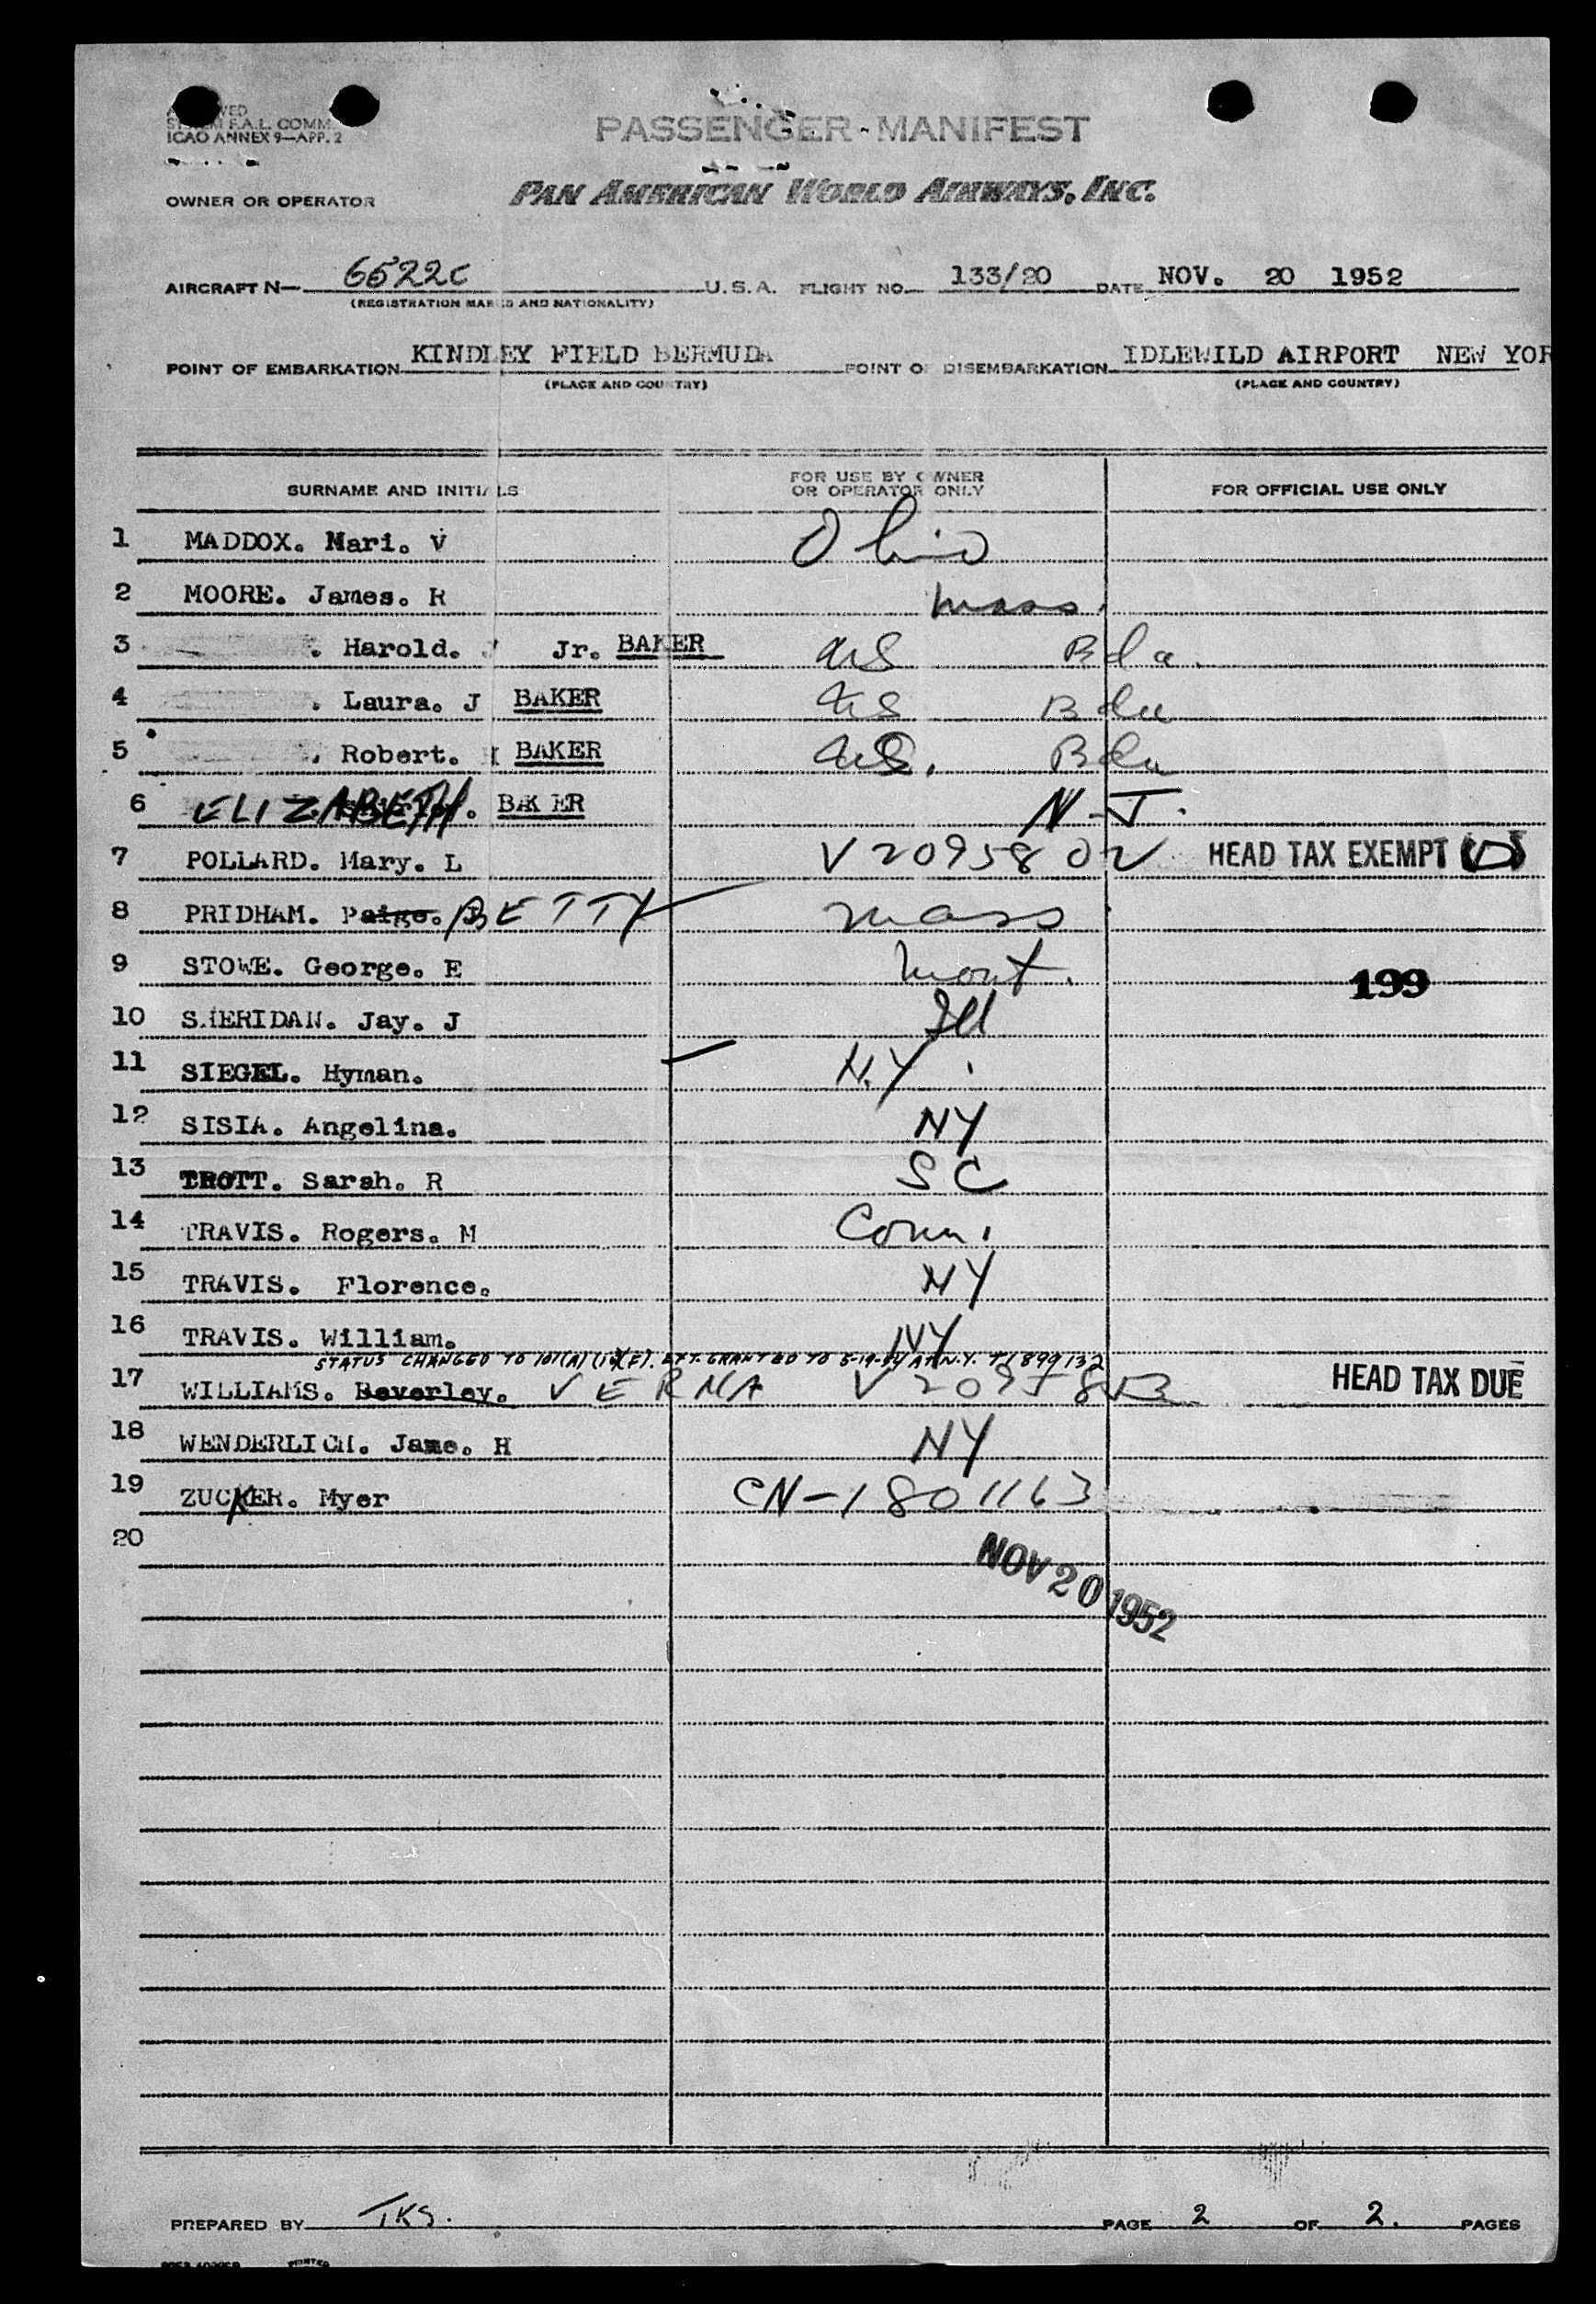 F.A.L. COMM.
ICAO ANNEX 9—APP. 2
PASSENGER MANIFEST
OWNER OR OPERATOR PAN AMERICAN WORLD AIRWAYS, INC.
AIRCRAFT N— 6522C U.S.A. FLIGHT NO. 133/20 DATE NOV. 20 1952
(REGISTRATION MARKS AND NATIONALITY)
POINT OF EMBARKATION KINDLEY FIELD BERMUDA POINT OF DISEMBARKATION IDLEWILD AIRPORT NEW YOR
(PLACE AND COUNTRY) (PLACE AND COUNTRY)
SURNAME AND INITIALS FOR USE BY OWNER OR OPERATOR ONLY FOR OFFICIAL USE ONLY
1 MADDOX. Mari. V Ohio
2 MOORE. James. R Mass.
3 . Harold. Jr. BAKER US Bda.
4 . Laura. J BAKER US Bda
5 . Robert. BAKER US. Bda
6 ELIZABETH. BAKER N.J.
7 POLLARD. Mary. L V2095802 HEAD TAX EXEMPT
8 PRIDHAM. Paige. BETTY Mass
9 STOWE. George. E Mont.
199
10 SHERIDAN. Jay. J Ill
11 SIEGEL. Hyman. N.Y.
12 SISIA. Angelina. NY
13 TROTT. Sarah. R SC
14 TRAVIS. Rogers. M Conn.
15 TRAVIS. Florence. NY
16 TRAVIS. William. NY
STATUS CHANGED TO 101(A)(15)(F). EXT. GRANTED TO 5-19-54 AT N.Y. T1899132
17 WILLIAMS. Beverley. VERNA HEAD TAX DUE
18 WENDERLICH. Jame. H NY
19 ZUCKER. Myer CN-1801163
20
NOV 20 1952
PREPARED BY TKS. PAGE 2 OF 2. PAGES